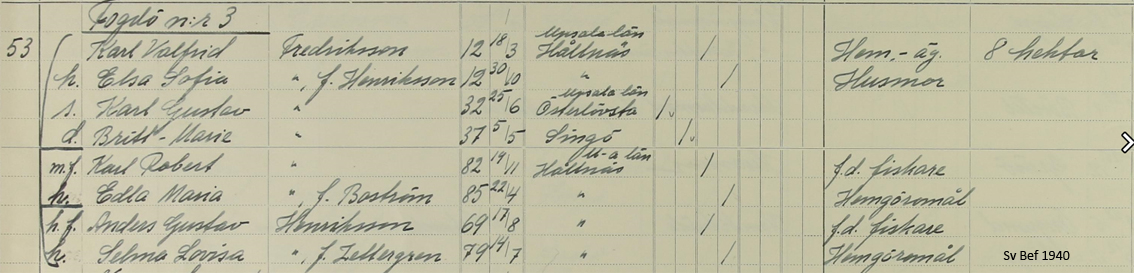 Fogdö n:r 3
53 Karl Valfrid Fredriksson 12 18/3 Upsala län Hållnäs / Hem.-äg. 8 hektar
h. Elsa Sofia " , f. Henriksson 12 30/10 " / Husmor
s. Karl Gustav " 32 25/6 Upsala län Österlövsta /v
d. Britt-Marie " 37 5/5 Singö /v
m.f. Karl Robert " 82 19/11 U-a län Hållnäs / f.d. fiskare
h. Edla Maria " , f. Boström 85 22/4 " / Hemgöromål
h.f. Anders Gustav Henriksson 69 17/8 " / f.d. fiskare
h. Selma Lovisa " , f. Zettergren 79 14/7 " / Hemgöromål
Sv Bef 1940